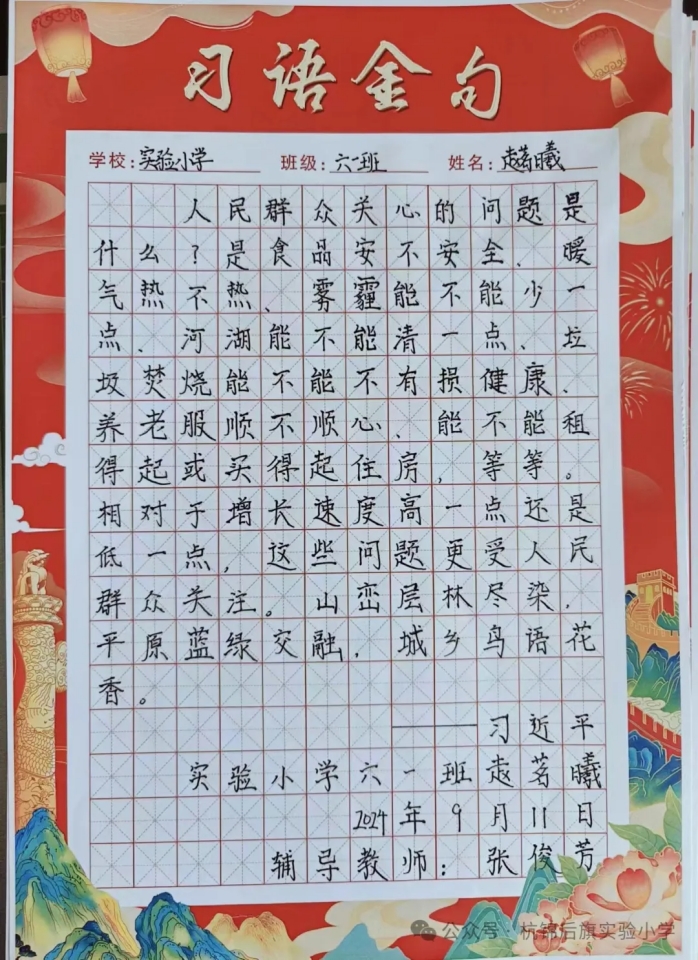 习语金句
学校：实验小学 班级：六一班 姓名：赵茗曦
人民群众关心的问题是
什么？是食品安不安全、暖
气热不热、雾霾能不能少一
点、河湖能不能清一点、垃
圾焚烧能不能不有损健康、
养老服顺不顺心、能不能租
得起或买得起住房，等等。
相对于增长速度高一点还是
低一点，这些问题更受人民
群众关注。山峦层林尽染，
平原蓝绿交融，城乡鸟语花
香。
——习近平
实验小学六一班赵茗曦
2024年9月11日
辅导教师：张俊芳
公众号·杭锦后旗实验小学